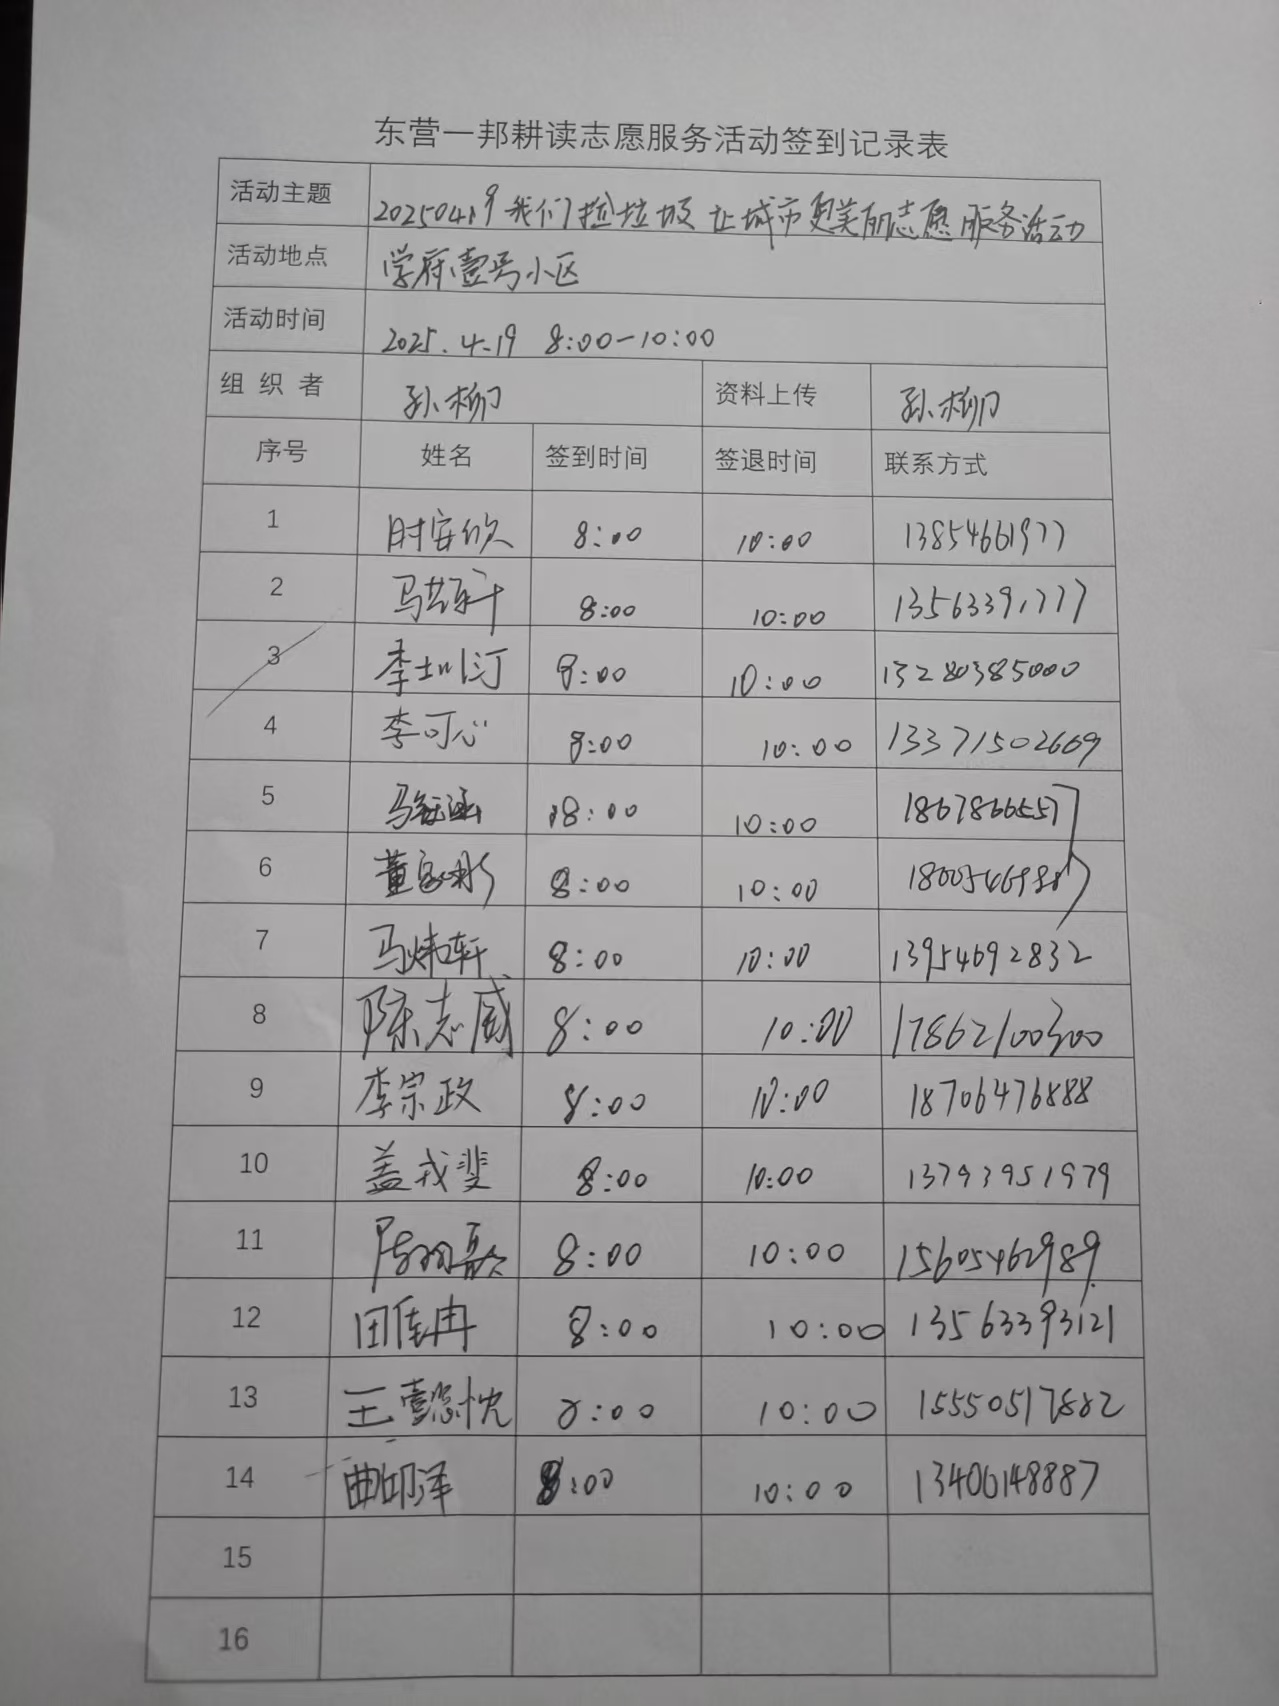 东营一邦耕读志愿服务活动签到记录表
活动主题 20250419我们捡垃圾 让城市更美丽志愿服务活动
活动地点 学府壹号小区
活动时间 2025.4.19 8:00-10:00
组织者 孙柳 资料上传 孙柳
序号 姓名 签到时间 签退时间 联系方式
1 时安欣 8:00 10:00 13854661977
2 8:00 10:00 13563391777
3 8:00 10:00 13280385000
4 李可心 8:00 10:00 13371502669
5 8:00 10:00 18678665557
6 8:00 10:00
7 马炜轩 8:00 10:00 13954692832
8 陈志威 8:00 10:00 17862100300
9 李宗政 8:00 10:00 18706476888
10 盖戎斐 8:00 10:00 13793951979
11 8:00 10:00 15605462989
12 田佳冉 8:00 10:00 13563393121
13 王懿忱 8:00 10:00 15550517882
14 曲印泽 8:00 10:00 13406148887
15
16